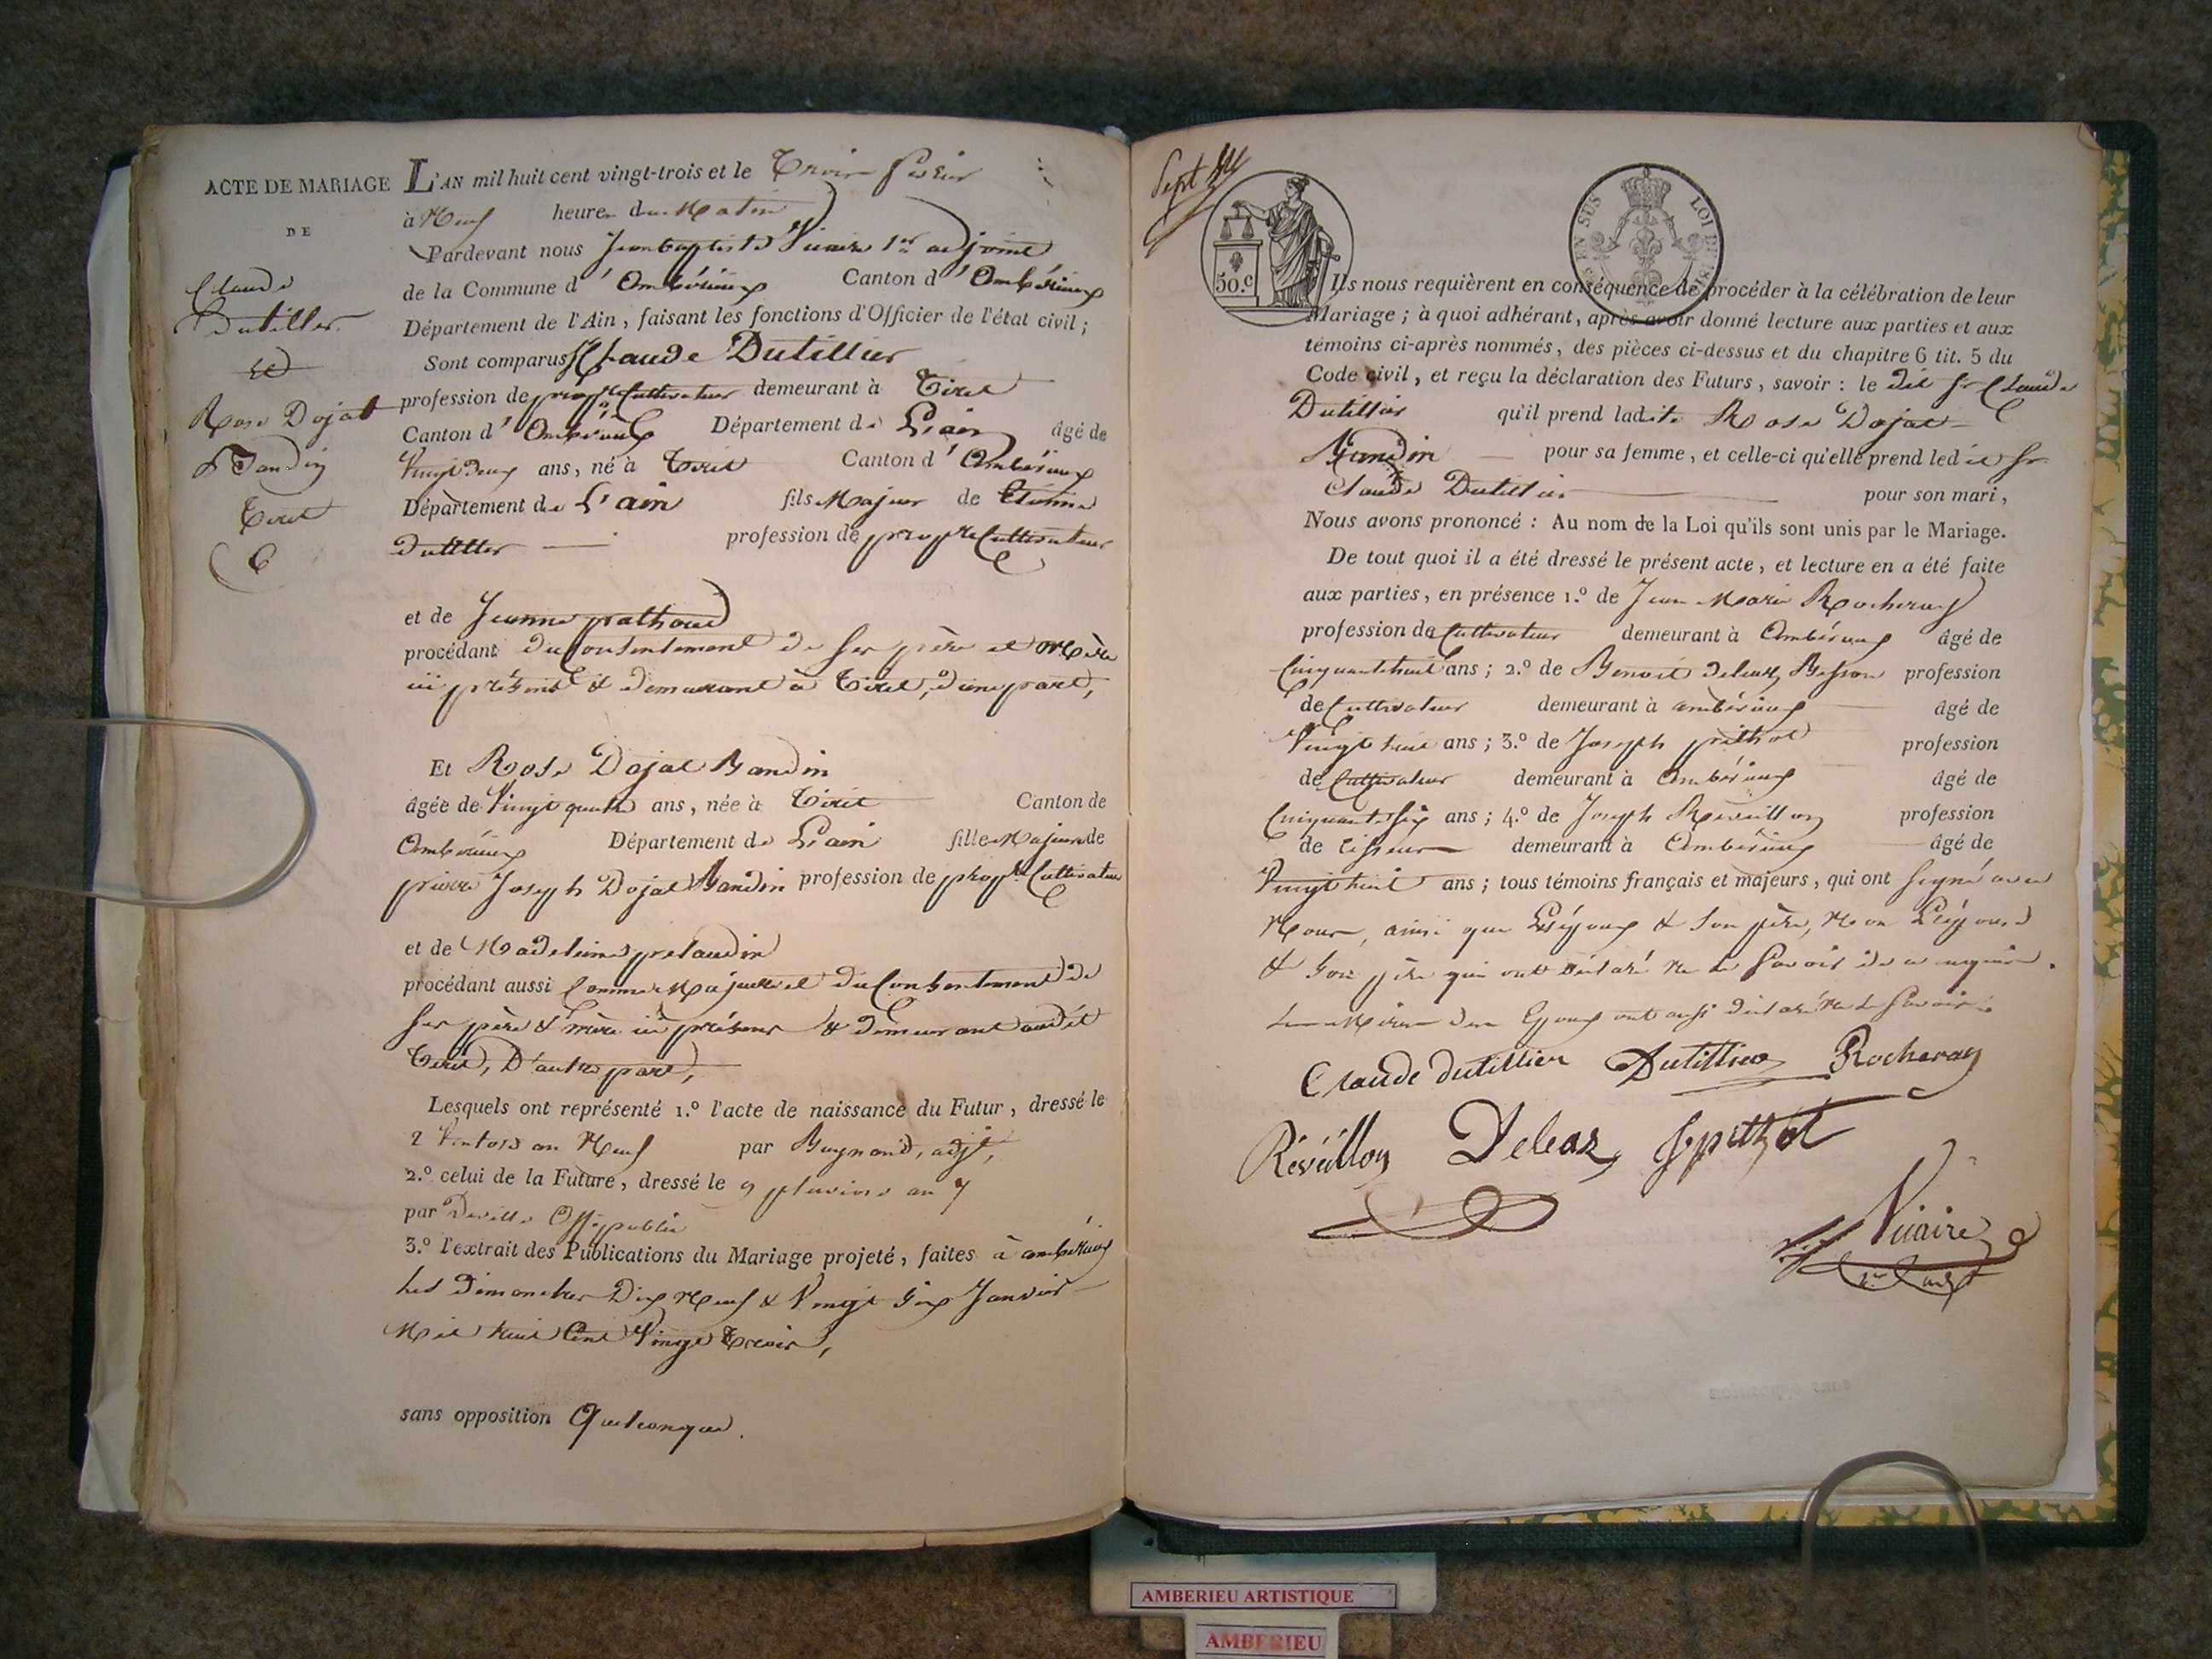 ACTE DE MARIAGE
DE
Claude
Dutillier
et
Rose Dojat
Bandin
Tiret
L'AN mil huit cent vingt-trois et le Trois Février
à Neuf heures du Matin
Pardevant nous Jean baptiste Vicaire 1er adjoint
de la Commune d'Ambérieux Canton d'Ambérieux
Département de l'Ain, faisant les fonctions d'Officier de l'état civil;
Sont comparus Claude Dutillier
profession de propre Cultivateur demeurant à Tiret
Canton d'Ambérieux Département de L'ain âgé de
Vingt deux ans, né à Tiret Canton d'Ambérieux
Département de L'ain fils Majeur de Etienne
Dutillier profession de propre Cultivateur
et de Jeanne prathoud
procédant du Consentement de ses père et Mère
ici présents & demeurant à Tiret, d'une part,
Et Rose Dojat Bandin
âgée de Vingt quatre ans, née à Tiret Canton de
Ambérieux Département de L'ain fille Majeure de
pierre Joseph Dojat Bandin profession de propre Cultivateur
et de Madeleine prelaudin
procédant aussi Comme Majeure et du Consentement de
ses père & mère ici présens & demeurant audit
Tiret, D'autre part,
Lesquels ont représenté 1.° l'acte de naissance du Futur, dressé le
2 Ventose an Neuf par Buynand, adjt,
2.° celui de la Future, dressé le 9 pluviose an 7
par Deville Off. public
3.° l'extrait des Publications du Mariage projeté, faites à ambérieux
les Dimanches Dix Neuf & Vingt Six Janvier
Mil huit Cent Vingt Trois,
sans opposition Quelconque.
Sept
50.c
EN SUS
LOI DE
Ils nous requièrent en conséquence de procéder à la célébration de leur
Mariage; à quoi adhérant, après avoir donné lecture aux parties et aux
témoins ci-après nommés, des pièces ci-dessus et du chapitre 6 tit. 5 du
Code civil, et reçu la déclaration des Futurs, savoir: le dit Sr Claude
Dutillier qu'il prend ladite Rose Dojat
Bandin pour sa femme, et celle-ci qu'elle prend ledit Sr
Claude Dutillier pour son mari,
Nous avons prononcé: Au nom de la Loi qu'ils sont unis par le Mariage.
De tout quoi il a été dressé le présent acte, et lecture en a été faite
aux parties, en présence 1.° de Jean Marie Rocheray
profession de Cultivateur demeurant à Ambérieux âgé de
Cinquante huit ans; 2.° de Benoit Deleaz Besson profession
de Cultivateur demeurant à ambérieux âgé de
Vingt huit ans; 3.° de Joseph pithot profession
de Cultivateur demeurant à Ambérieux âgé de
Cinquante six ans; 4.° de Joseph Réveillon profession
de tisseur demeurant à Ambérieux âgé de
Vingt huit ans; tous témoins français et majeurs, qui ont signé avec
Nous, ainsi que L'époux & Son père, Non L'épouse
& Son père qui ont déclaré ne le Savoir de ce requis.
Les Mères des Epoux ont aussi déclaré ne le Savoir.
Claude dutillier Dutillier Rocheray
Réveillon Deleaz Jpithot
Vicaire
1er adjt
AMBERIEU ARTISTIQUE
AMBERIEU